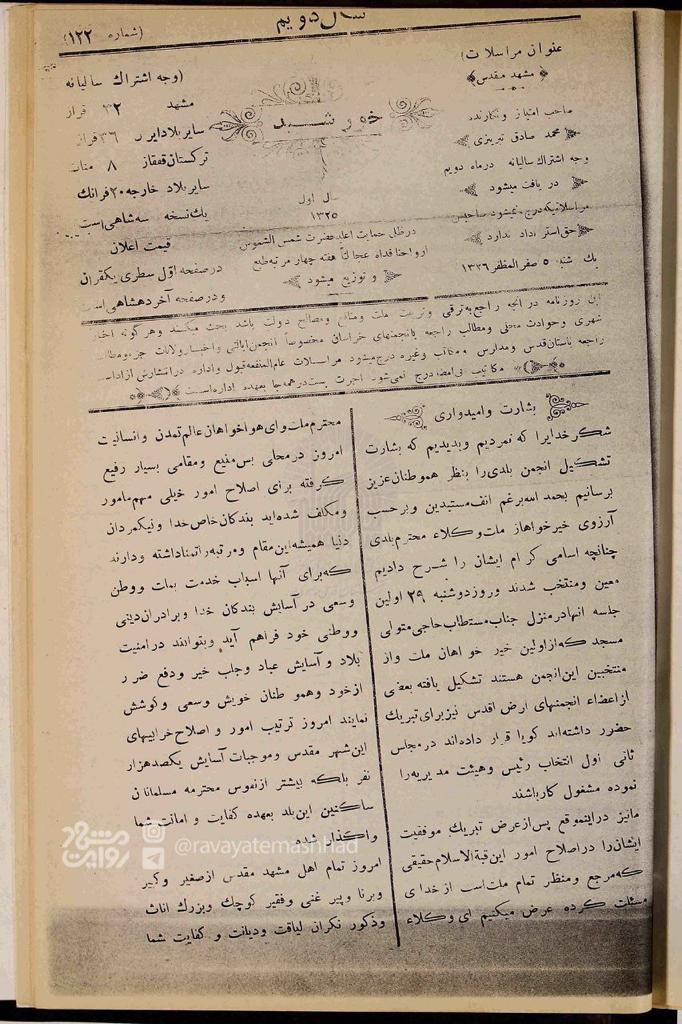 سال دویم
(شماره ۱۲۲)
عنوان مراسلات)
مشهد مقدس
صاحب امتیاز ونکارنده
محمد صادق تبریزی
وجه اشتراك سالیانه درماه دویم
در یافت میشود
مراسلاتیکه درج نمیشود صاحبش
حق استر داد ندارد
یك شنبه ۵ صفر المظفر ۱۳۲۶
خورشید
سال اول
۱۳۲۵
در ظل حمایت اعلیحضرت شمس الشموس
ارواحنا فداه عجالتاً هفته چهار مرتبه طبع
و توزیع میشود
(وجه اشتراك سالیانه
مشهد ۳۲ قران
سایر بلاد ایران ۳۶ قران
ترکستان قفقاز ۸ منات
سایر بلاد خارجه ۲۰ فرانك
یك نسخه سه شاهی است
قیمت اعلان
در صفحه اول سطری یکقران
ودر صفحه آخر ده شاهی است
این روزنامه در آنچه راجع به ترقی وتربیت ملت ومنافع ومصالح دولت باشد بحث میکند وهر گونه اخبار
شهری وحوادث محلی ومطالب راجعه بانجمنهای خراسان مخصوصاً انجمن ایالتی واخبار ولایات جزء ومطالب
راجعه باستان قدس ومدارس ومکاتب وغیره درج میشود مراسلات عام المنفعه قبول واداره در انتشارش آزاد است
مکاتیب بی امضا درج نمی شود اجرت پست در همه جا بعهده اداره است
بشارت وامیدواری
شکر خدایرا که نمردیم وبدیدیم که بشارت
تشکیل انجمن بلدی را بنظر هموطنان عزیز
برسانیم بحمد الله برغم انف مستبدین وبر حسب
آرزوی خیر خواهان ملت وکلاء محترم بلدی
چنانچه اسامی کرام ایشان را شرح دادیم
معین ومنتخب شدند وروز دوشنبه ۲۹ اولین
جلسه انها در منزل جناب مستطاب حاجی متولی
مسجد که از اولین خیر خواهان ملت واز
منتخبین این انجمن هستند تشکیل یافته بعضی
از اعضاء انجمنهای ارض اقدس نیز برای تبریك
حضور داشته اند کویا قرار داده اند در مجلس
ثانی اول انتخاب رئیس وهیئت مدیریه را
نموده مشغول کار باشند
مانیز در اینموقع پس از عرض تبریك موفقیت
ایشان را در اصلاح امور این قبة الاسلام حقیقی
که مرجع ومنظر تمام ملت است از خدای
مسئلت کرده عرض میکنیم ای وکلاء
محترم ملت وای هواخواهان عالم تمدن وانسانیت
امروز در محلی بس منیع ومقامی بسیار رفیع
کرفته برای اصلاح امور خیلی مهم مامور
ومکلف شده اید بندکان خاص خدا ونیکمردان
دنیا همیشه این مقام ومرتبه را تمنا داشته ودارند
که برای آنها اسباب خدمت بملت ووطن
وسعی در آسایش بندکان خدا وبرادران دینی
ووطنی خود فراهم آید وبتوانند در امنیت
بلاد و آسایش عباد وجلب خیر ودفع ضرر
از خود وهمو طنان خویش وسعی وکوشش
نمایند امروز ترتیب امور و اصلاح خرابیهای
این شهر مقدس وموجبات آسایش یکصد هزار
نفر بلکه بیشتر از نفوس محترمه مسلمانان
ساکنین این بلد بعهده کفایت و امانت شما
واکذار شده
امروز تمام اهل مشهد مقدس از صغیر وکبیر
وبرنا وپیر غنی وفقیر کوچك وبزرك اناث
وذکور نکران لیاقت ودیانت و کفایت شما
روایت مشهد
@ravayatemashhad